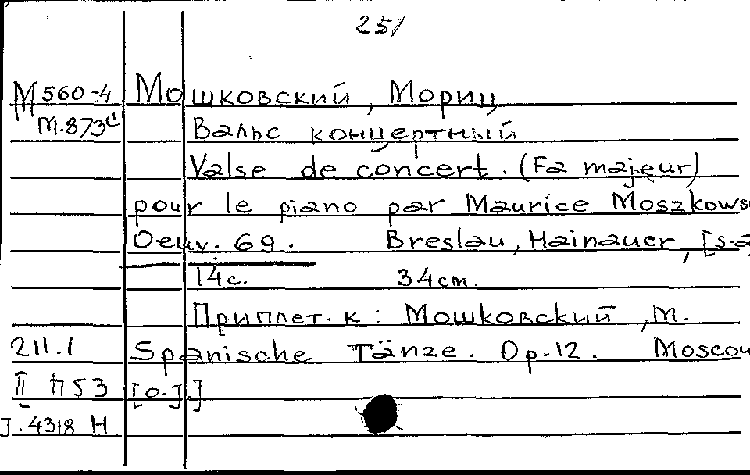 251
M 560-4 Мошковский, Мориц
М.873 Вальс концертный
Valse de concert. (Fa majeur)
pour le piano par Maurice Moszkows
Oeuv. 69. Breslau, Hainauer, [s.a
14с. 34cm.
Приплет. к: Мошковский, М.
211.1 Spanische Tänze. Op.12. Moscou
II П53 [o.J]
J.4318 Н